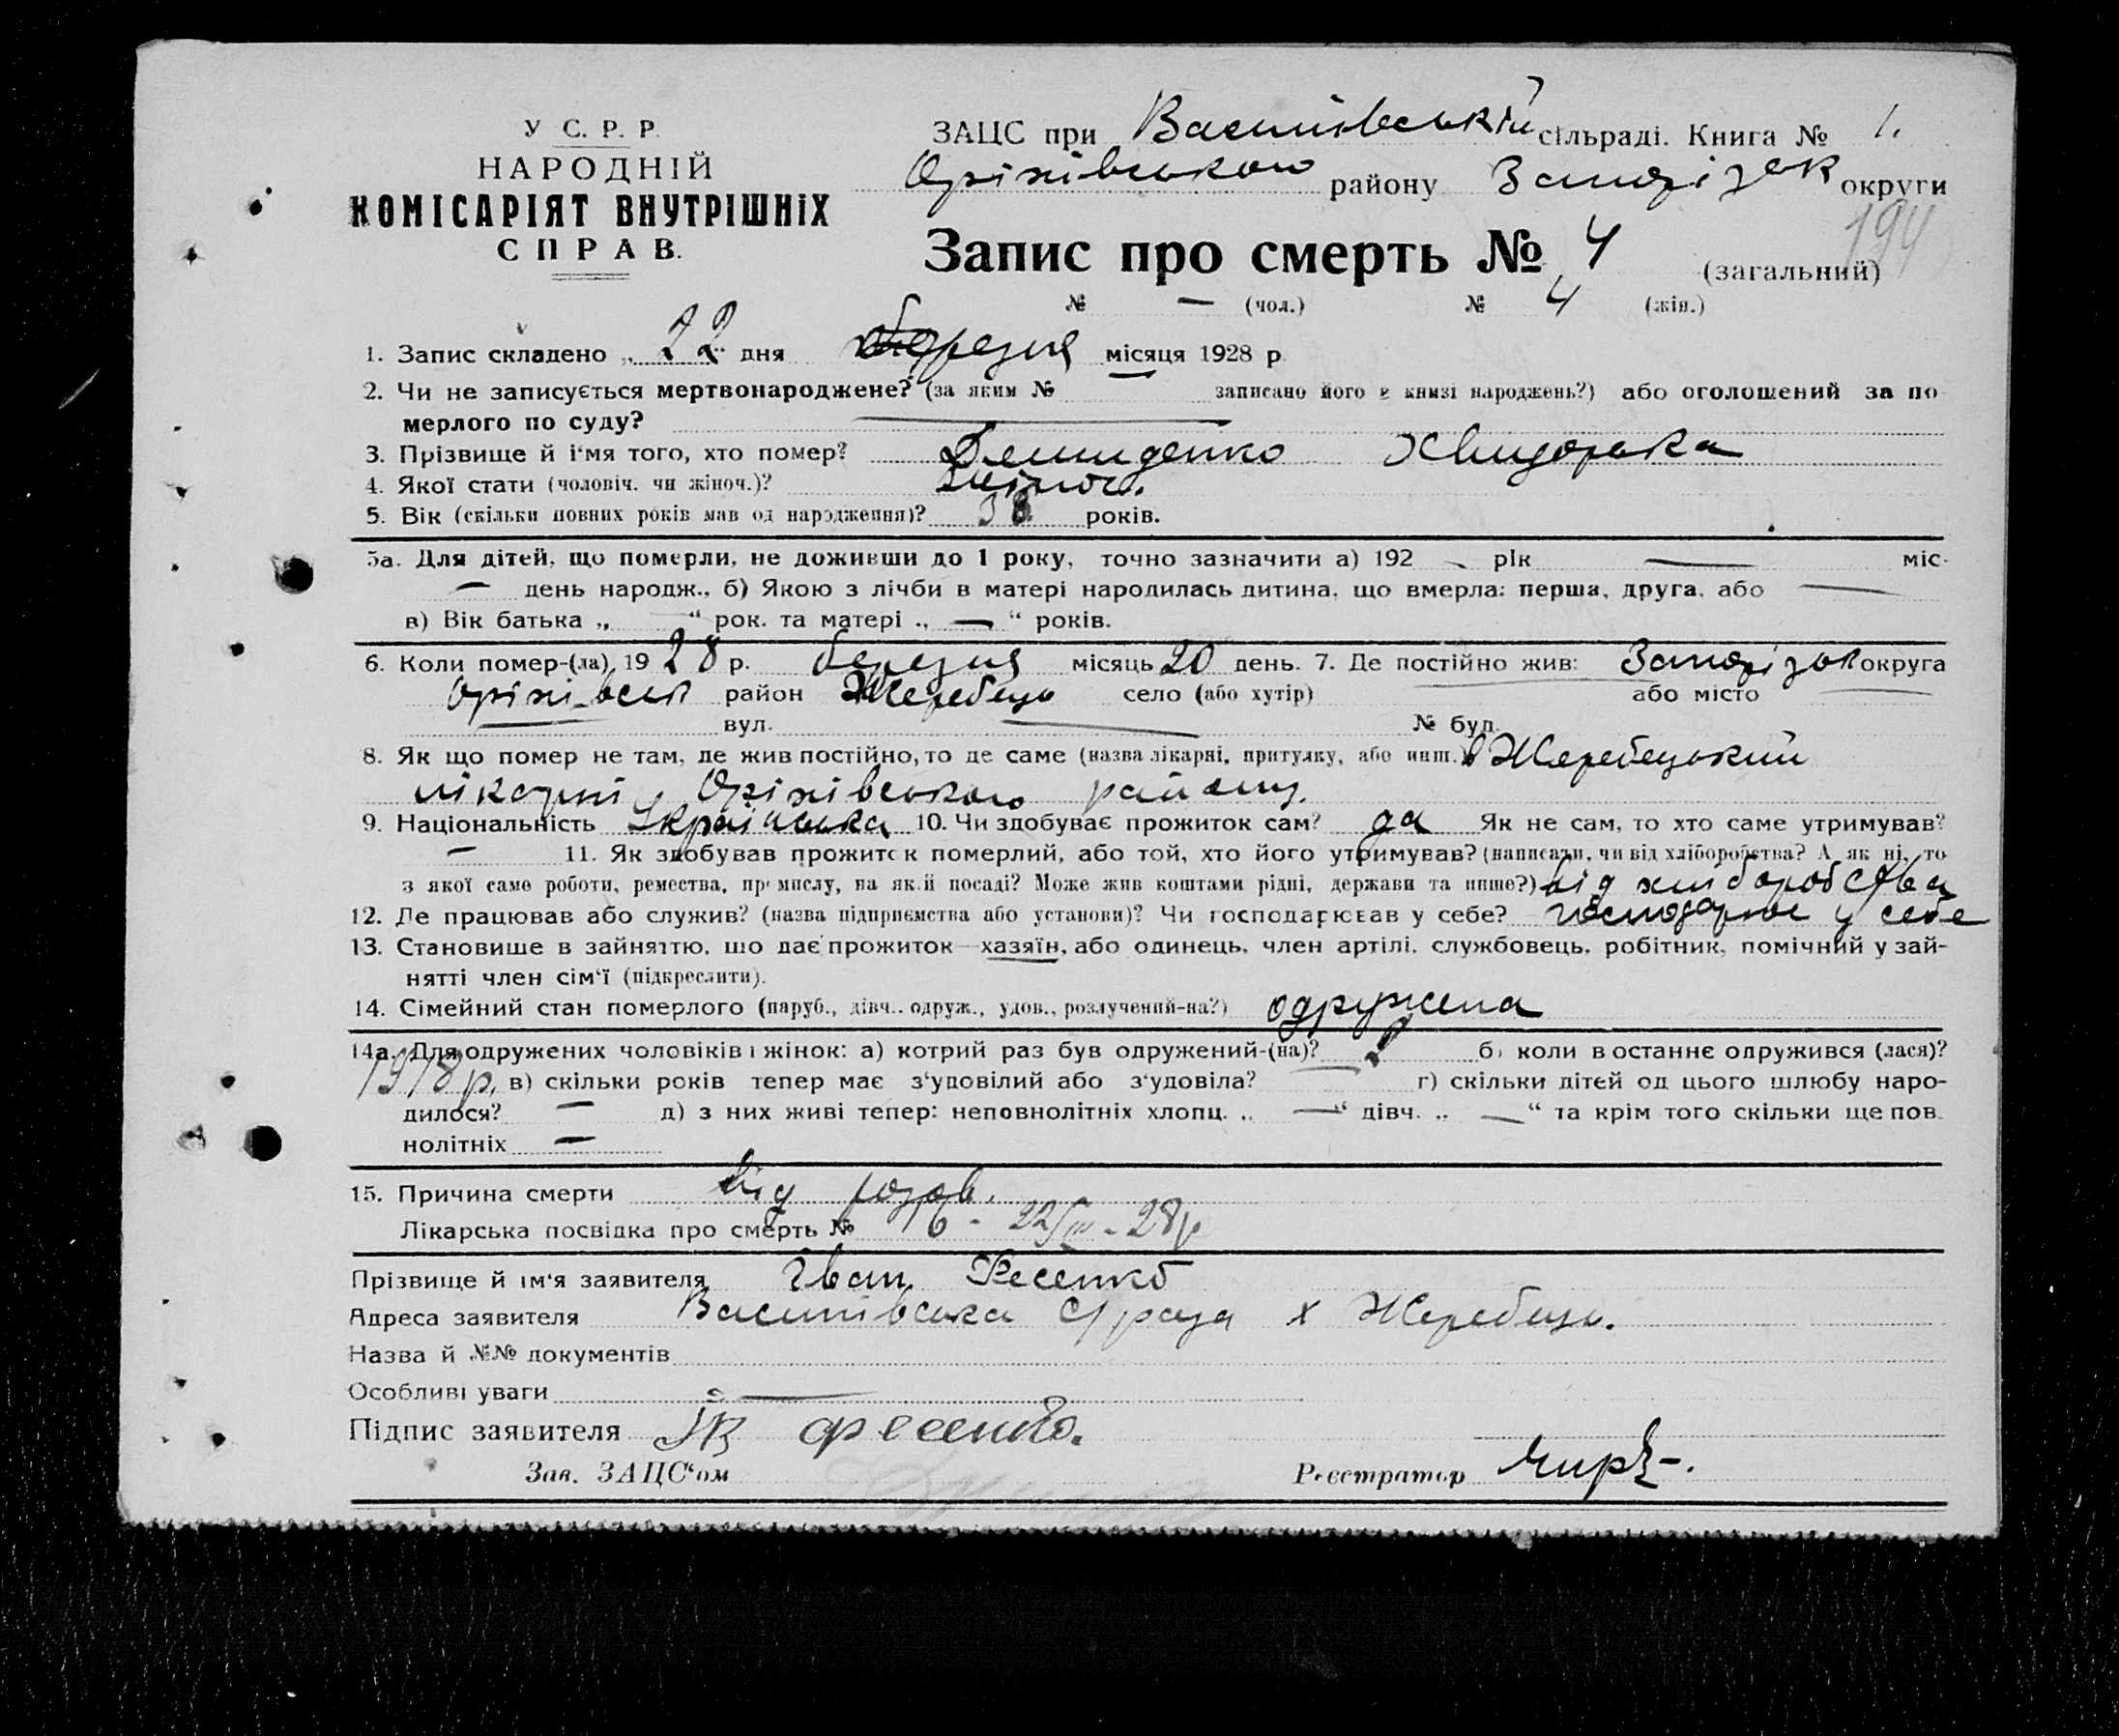 У С. Р. Р.
НАРОДНІЙ
КОМІСАРІЯТ ВНУТРІШНІХ
СПРАВ.
ЗАЦС при Василівській сільраді. Книга № 1.
Оріхівського району Запорізьк округи
194
Запис про смерть № 4 (загальний)
№ — (чол.) № 4 (жін.)
1. Запис складено „ 22 " дня березня місяця 1928 р.
2. Чи не записується мертвонароджене? (за яким № — записано його в книзі народжень?) або оголошений за по-
мерлого по суду? —
3. Прізвище й ім'я того, хто помер? Демиденко
4. Якої стати (чоловіч. чи жіноч.)? Жіноч.
5. Вік (скільки повних років мав од народження)? 38 років.
5а. Для дітей, що померли, не доживши до 1 року, точно зазначити а) 192 - рік — міс.
— день народж., б) Якою з лічби в матері народилась дитина, що вмерла: перша, друга, або —
в) Вік батька „ — “ рок. та матері „ — “ років.
6. Коли помер-(ла) 1928 р. березня місяць 20 день. 7. Де постійно жив: Запорізьк округа
Оріхівськ район Жеребець село (або хутір) — або місто —
— вул. — № буд.
8. Як що помер не там, де жив постійно, то де саме (назва лікарні, притулку, або инш.) в Жеребецький
лікарні Оріхівського району.
9. Національність Українська 10. Чи здобуває прожиток сам? да Як не сам, то хто саме утримував?
— 11. Як здобував прожиток померлий, або той, хто його утримував? (написати, чи від хліборобства? А як ні, то
з якої саме роботи, ремества, промислу, на якій посаді? Може жив коштами рідні, держави та инше?) від хліборобства
12. Де працював або служив? (назва підприємства або установи)? Чи господарював у себе? господарює у себе
13. Становище в зайняттю, що дає прожиток—хазяїн, або одинець, член артілі, службовець, робітник, помічний у зай-
нятті член сім‘ї (підкреслити).
14. Сімейний стан померлого (паруб., дівч., одруж., удов., розлучений-на?) одружена
14а. Для одружених чоловіків і жінок: а) котрий раз був одружений-(на)? б) коли в останнє одружився (лася)?
1918 р. в) скільки років тепер має з‘удовілий або з‘удовіла? г) скільки дітей од цього шлюбу наро-
дилося? — д) з них живі тепер: неповнолітніх хлопц. „ — “ дівч. „ — “ та крім того скільки ще пов-
нолітніх —
15. Причина смерти від
Лікарська посвідка про смерть № 16 - 22/III - 28р
Прізвище й ім‘я заявителя Іван Фесенко
Адреса заявителя Василівська с/рада х Жеребець.
Назва й №№ документів
Особливі уваги —
Підпис заявителя Ів Фесенко.
Зав. ЗАЦС‘ом Реєстратор